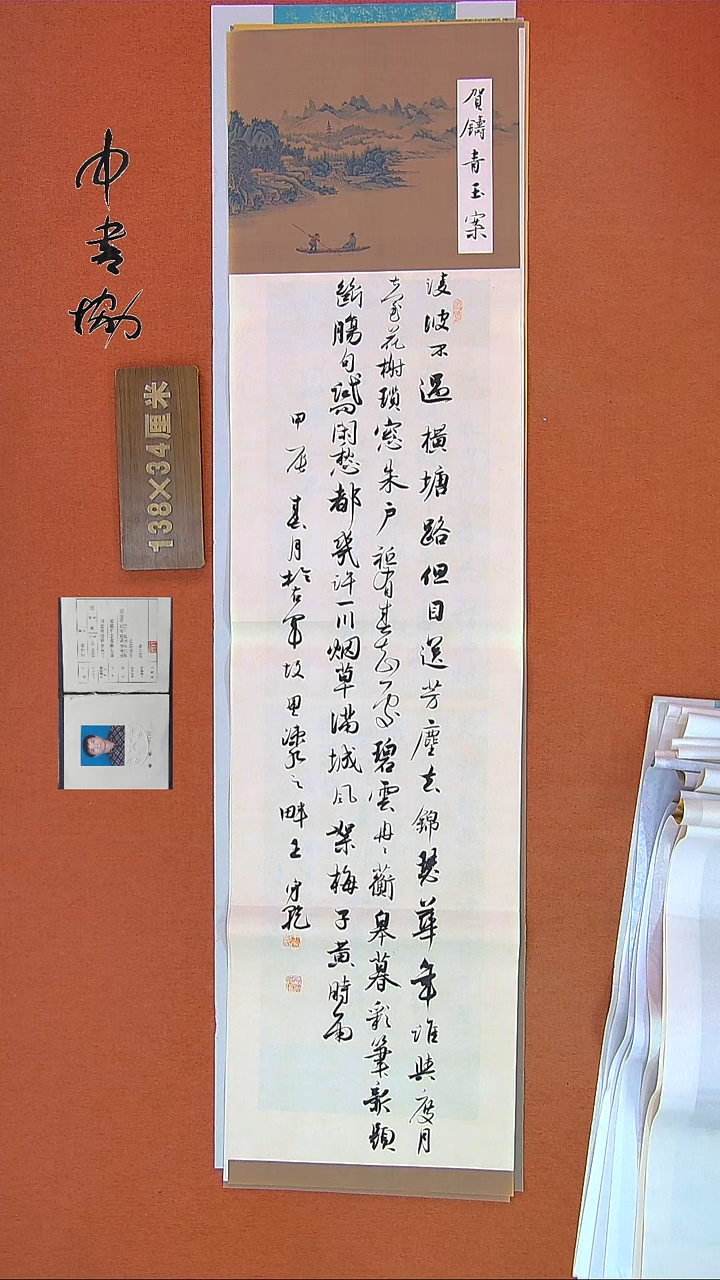 賀鑄青玉案
凌波不過橫塘路但目送芳塵去錦瑟華年誰與度月
臺花榭瑣窓朱戶秪有春知處碧雲冉〻蘅皋暮彩筆新題
斷腸句試問閑愁都幾許一川烟草滿城风絮梅子黄時雨
甲辰春月於右軍故里之畔王守乾
中书协
138×34厘米